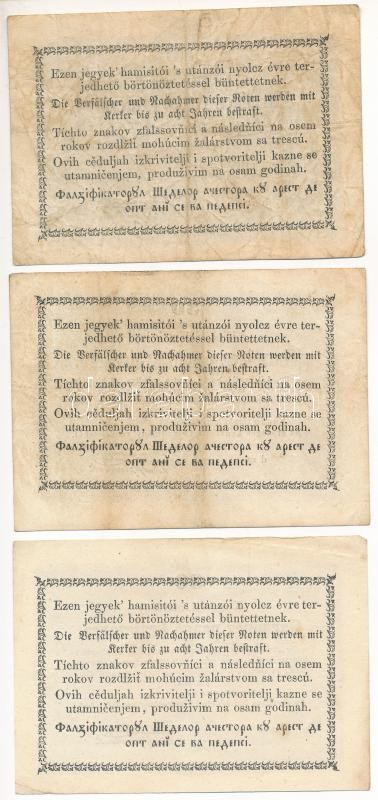 Ezen jegyek' hamisitói 's utánzói nyolcz évre ter-
jedhető börtönöztetéssel büntettetnek.
Die Verfälscher und Nachahmer dieser Noten werden mit
Kerker bis zu acht Jahren bestraft.
Tíchto znakov zfalssovňíci a následňíci na osem
rokov rozdlžiť mohúcim žalárstvom sa trescú.
Ovih cěduljah izkrivitelji i spotvoritelji kazne se
utamničenjem, produživim na osam godinah.
Фалꙁіфікаторꙋл Шеделор ачестора кꙋ арест де
опт анĭ се ва педепсі.
Ezen jegyek' hamisitói 's utánzói nyolcz évre ter-
jedhető börtönöztetéssel büntettetnek.
Die Verfälscher und Nachahmer dieser Noten werden mit
Kerker bis zu acht Jahren bestraft.
Tíchto znakov zfalssovňíci a následňíci na osem
rokov rozdlžiť mohúcim žalárstvom sa trescú.
Ovih cěduljah izkrivitelji i spotvoritelji kazne se
utamničenjem, produživim na osam godinah.
Фалꙁіфікаторꙋл Шеделор ачестора кꙋ арест де
опт анĭ се ва педепсі.
Ezen jegyek' hamisitói 's utánzói nyolcz évre ter-
jedhető börtönöztetéssel büntettetnek.
Die Verfälscher und Nachahmer dieser Noten werden mit
Kerker bis zu acht Jahren bestraft.
Tíchto znakov zfalssovňíci a následňíci na osem
rokov rozdlžiť mohúcim žalárstvom sa trescú.
Ovih cěduljah izkrivitelji i spotvoritelji kazne se
utamničenjem, produživim na osam godinah.
Фалꙁіфікаторꙋл Шеделор ачестора кꙋ арест де
опт анĭ се ва педепсі.